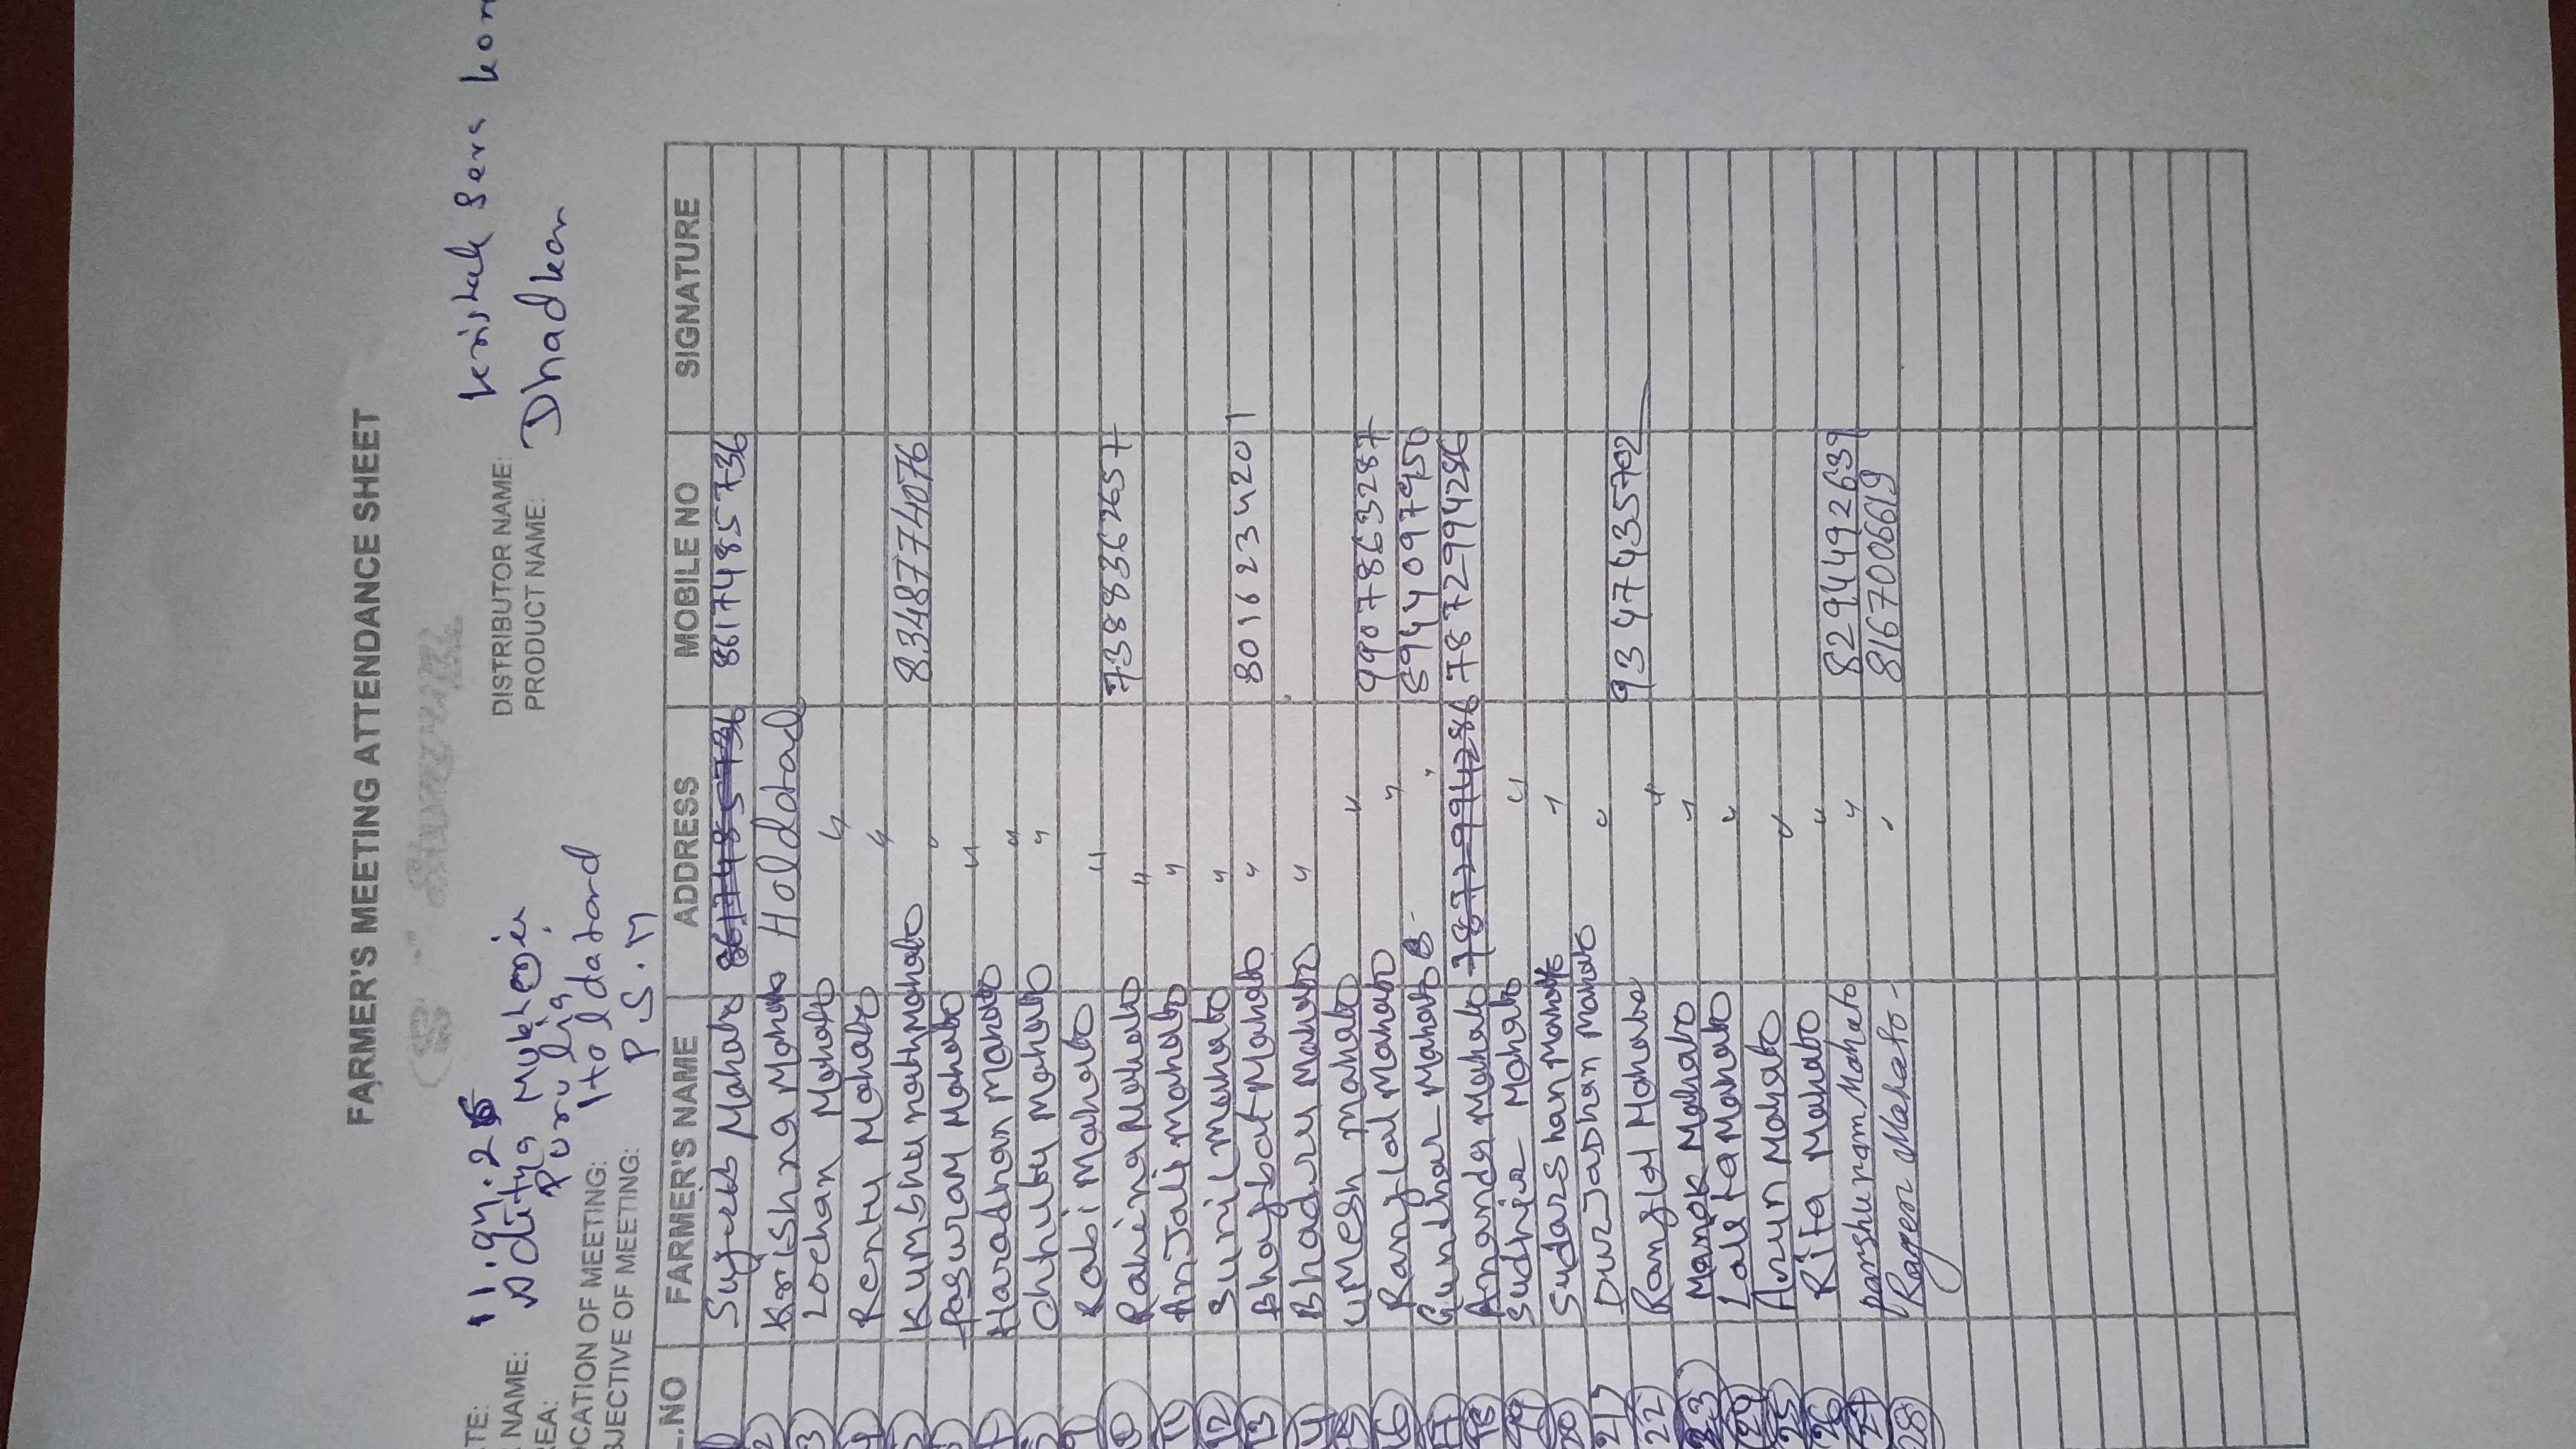 FARMER'S MEETING ATTENDANCE SHEET
TE: 11.04.25
NAME: Aditya Mukherjee
DISTRIBUTOR NAME: Krishak Seva
REA: Purulia
PRODUCT NAME: Dhadkan
OCATION OF MEETING: Holdatard
BJECTIVE OF MEETING: P.S.M
L.NO FARMER'S NAME ADDRESS MOBILE NO SIGNATURE
Mahato 8617485736 8617485736
2 Krishna Mahato Holdatad
3 Lochan Mahato "
4 Rentu Mahato "
5 Kumbhunath Mahato " 8348774076
Pasuram Mahato "
7 Haradhan Mahato "
8 Chhutu Mahato "
9 Rabi Mahato "
10 Mahato " 7388362657
11 Anjali Mahato "
12 Sunil Mahato "
13 Bhagbat Mahato " 8016234201
14 Bhaduru Mahato "
15 Umesh Mahato " 9907863287
16 Ranglal Mahato "
17 Mahato
18 Ananda Mahato 7872994286 7872994286
19 Sudhir Mahato "
20 Sudarshan Mahato "
21 Durjadhan Mahato " 9347435702
22 Ranglal Mahato "
23 Manok Mahato "
24 Lalita Mahato "
25 Arun Mahato "
26 Rita Mahato " 8294492639
27 parshuram Mahato " 8167006619
28 Ragen Mahato